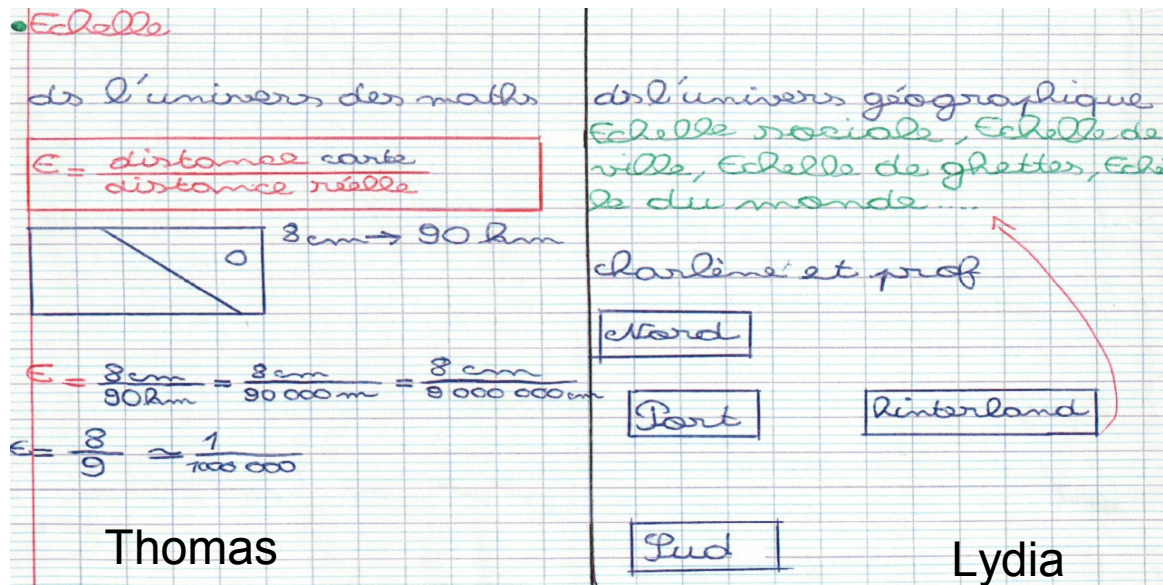 Echelle
ds l'univers des maths
E = distance carte / distance réelle
8 cm → 90 km
E = 8 cm / 90 km = 8 cm / 90 000 m = 8 cm / 9 000 000 cm
E = 8 / 9 ≃ 1 / 1000 000
Thomas
ds l'univers géographique
Echelle sociale, Echelle de
ville, Echelle de ghettes, Eche
le du monde....
charlène et prof
Nord
Port
hinterland
Sud
Lydia